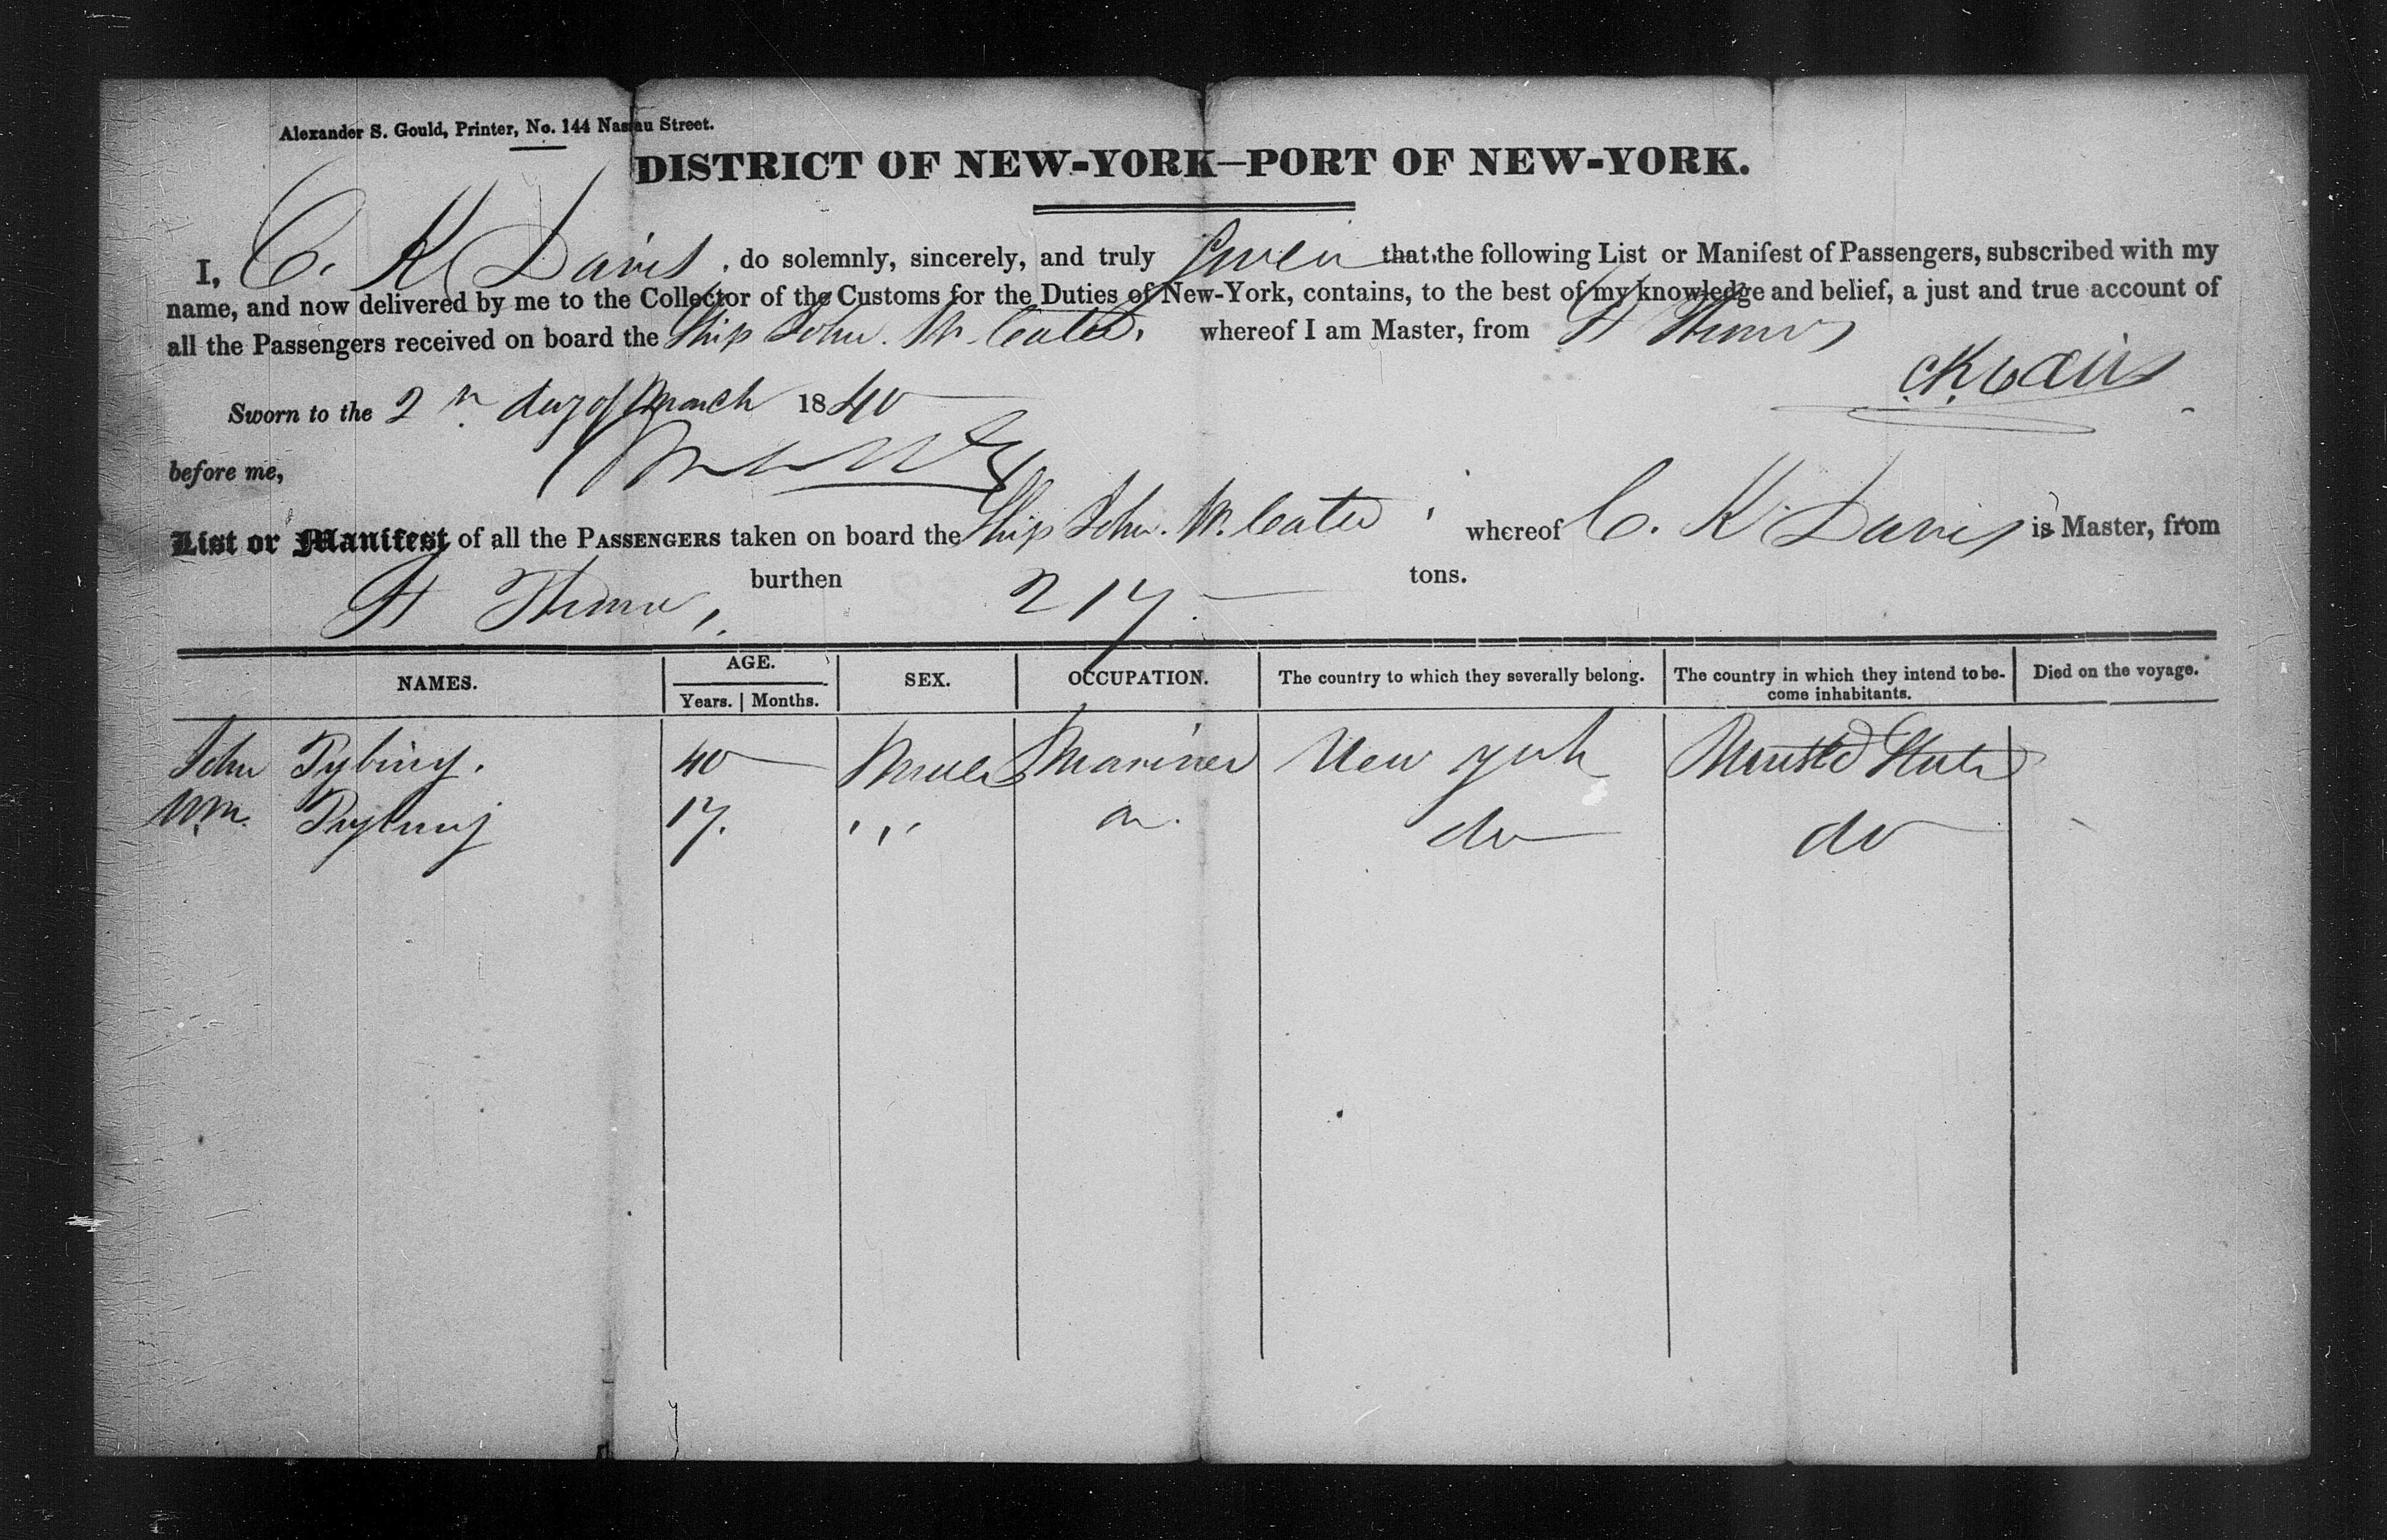 Alexander S. Gould, Printer, No. 144 Nassau Street.
DISTRICT OF NEW-YORK—PORT OF NEW-YORK.
I, C. K Davis, do solemnly, sincerely, and truly Swear that the following List or Manifest of Passengers, subscribed with my
name, and now delivered by me to the Collector of the Customs for the Duties of New-York, contains, to the best of my knowledge and belief, a just and true account of
all the Passengers received on board the Ship John. W. Cater. whereof I am Master, from St Thomas
CK Davis
Sworn to the 2 day of March 1840
before me,
List or Manifest of all the PASSENGERS taken on board the Ship John. W. Cater whereof C. K Davis is Master, from
St Thomas, burthen 217 tons.
NAMES. AGE. SEX. OCCUPATION. The country to which they severally belong. The country in which they intend to be- Died on the voyage.
Years. Months. come inhabitants.
John 40 Male Mariner New york United States
Wm. 17. " do do